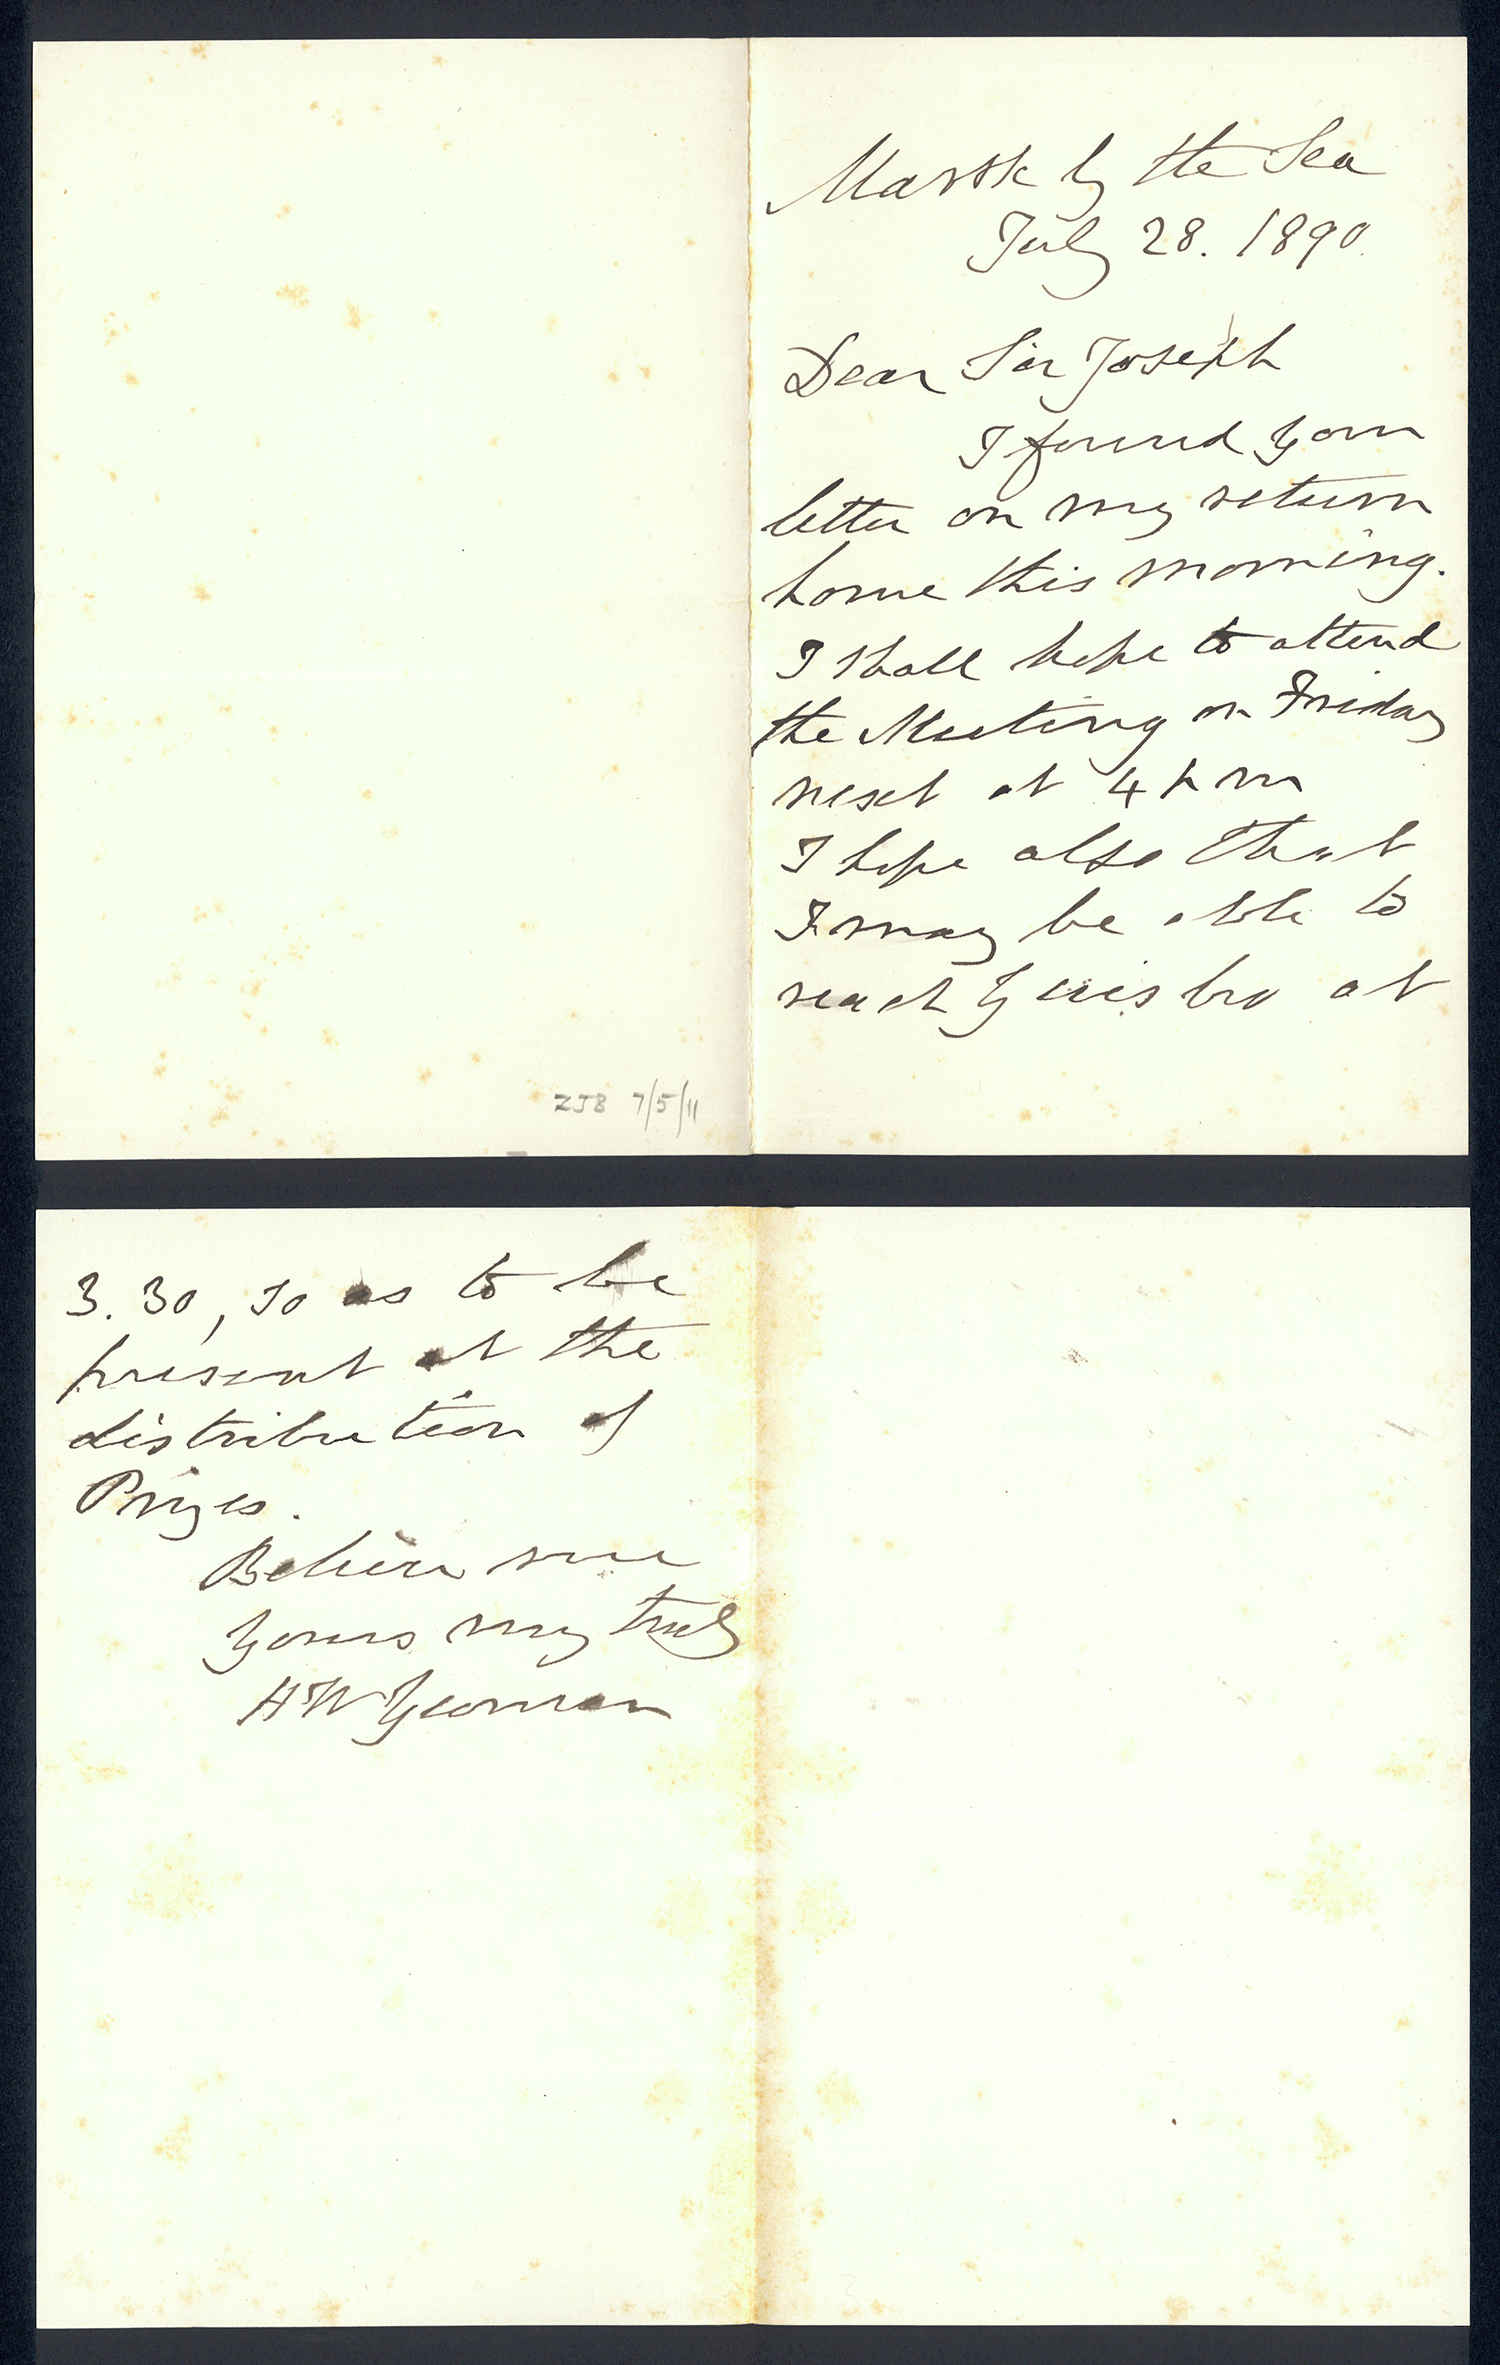 Marsk by the Sea
July 28. 1890.
Dear Sir Joseph
I found your
letter on my return
home this morning.
I shall hope to attend
the Meeting on Friday
next at 4 pm
I hope also that
I may be able to
reach Guisbro at
ZJB 7/5/11
3.30, so as to be
present at the
distribution of
Prizes.
Believe me
Yours very truly
H W Yeoman